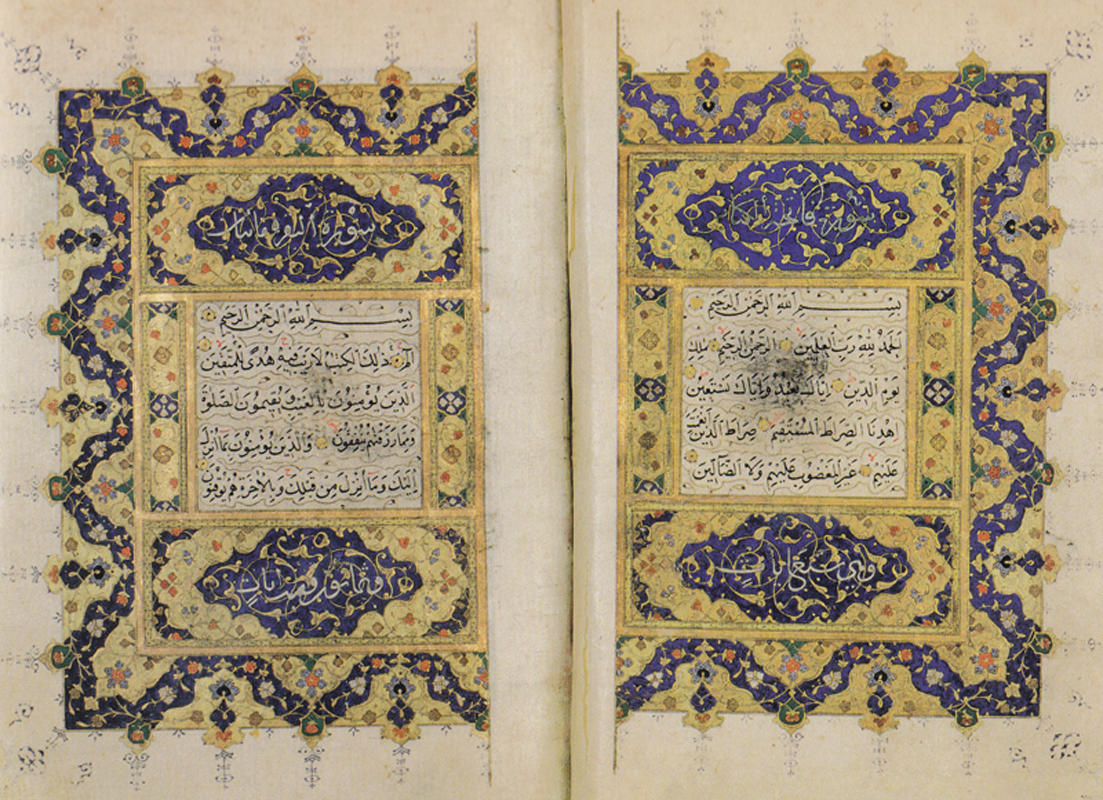 سورة فاتحة الكتاب
بِسْمِ اللّٰهِ الرَّحْمٰنِ الرَّحِيمِ
اَلْحَمْدُ لِلّٰهِ رَبِّ الْعٰلَمِينَ الرَّحْمٰنِ الرَّحِيمِ مٰلِكِ
يَوْمِ الدِّينِ اِيَّاكَ نَعْبُدُ وَاِيَّاكَ نَسْتَعِينُ
اِهْدِنَا الصِّرَاطَ الْمُسْتَقِيمَ صِرَاطَ الَّذِينَ اَنْعَمْتَ
عَلَيْهِمْ غَيْرِ الْمَغْضُوبِ عَلَيْهِمْ وَلَا الضَّالِّينَ
وهي سبع ايات
سورة البقرة مائتان
بِسْمِ اللّٰهِ الرَّحْمٰنِ الرَّحِيمِ
الٓمٓ ذٰلِكَ الْكِتٰبُ لَا رَيْبَ فِيهِ هُدًى لِلْمُتَّقِينَ
الَّذِينَ يُؤْمِنُونَ بِالْغَيْبِ وَيُقِيمُونَ الصَّلٰوةَ
وَمِمَّا رَزَقْنٰهُمْ يُنْفِقُونَ وَالَّذِينَ يُؤْمِنُونَ بِمَا اُنْزِلَ
اِلَيْكَ وَمَا اُنْزِلَ مِنْ قَبْلِكَ وَبِالْاٰخِرَةِ هُمْ يُوقِنُونَ
وثمانون وست ايات